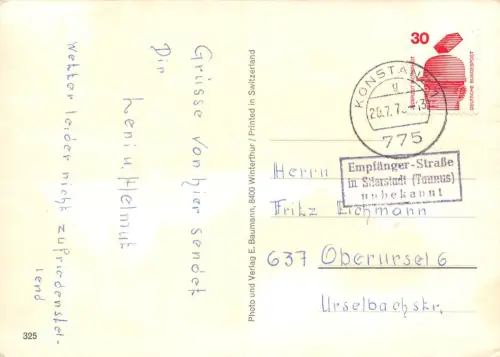 Grüsse von hier sendet
Dir
Leni u Helmut
Wetter leider nicht zufriedenstel-
lend
325
Photo und Verlag E. Baumann, 8400 Winterthur / Printed in Switzerland
30
DEUTSCHE BUNDESPOST
KONSTANZ
775
Empfänger-Straße
in Stierstadt (Taunus)
unbekannt
Herrn
Fritz Eichmann
637 Oberursel 6
Urselbachstr.